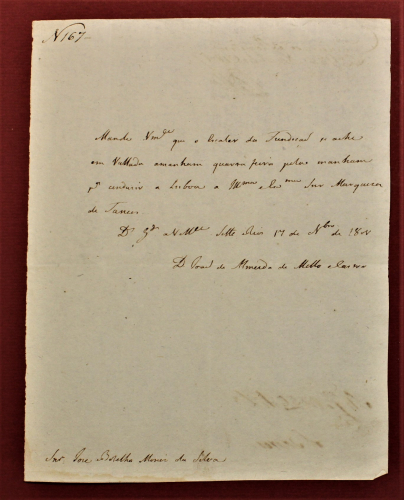 N 167
Mande Vm.ce que o Escaler da Fundição se ache
em Vallada amanham quarta feira pelas manham
p.a conduzir a Lisboa a Illma e Exma Snr Marqueza
de Tancos
D.s g.e a V M.ce Sette Rios 17 de N.bro de
D. José de Almeida de Mello e Castro
Snr. Jose Botelho Moniz da Silva